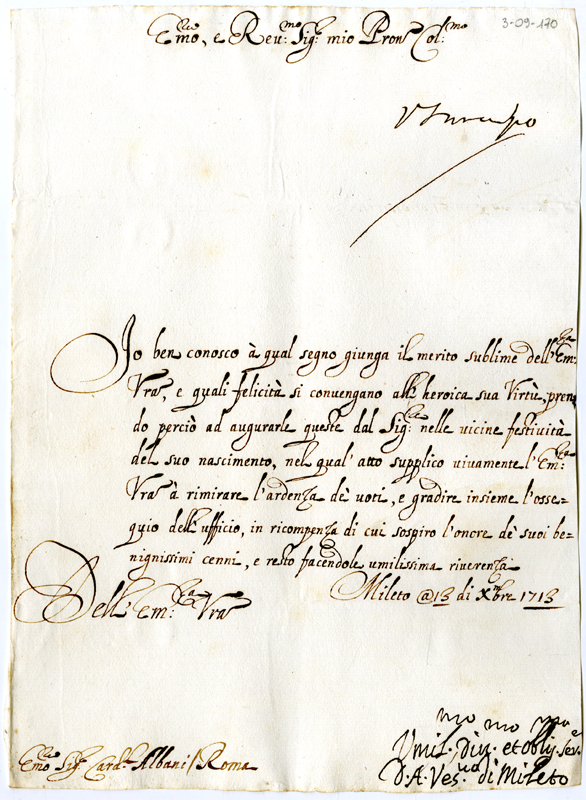 3-09-170
Em̃o, e Reu:mo Sig: mio Pron Col:mo
Io ben conosco à qual segno giunga il merito sublime dell'Em:za
Vra, e quali felicità si conuengano all' heroica sua Virtù, pren
do perciò ad augurarle queste dal Sig:re nelle uicine festiuità
del suo nascimento, nel qual' atto supplico uiuamente l'Em:za
Vra à rimirare l'ardenza de' uoti, e gradire insieme l'osse-
quio dell' ufficio, in ricompenza di cui sospiro l'onore de' suoi be-
nignissimi cenni, e resto facendole umilissima riuerenza
Mileto @ 13 di Xmbre 1713
Dell' Em:za Vra
Umil:mo Diu:mo et obli:mo Ser:e
D. A. Ves:uo di Mileto
Em̃o Sig:re Card: Albani / Roma